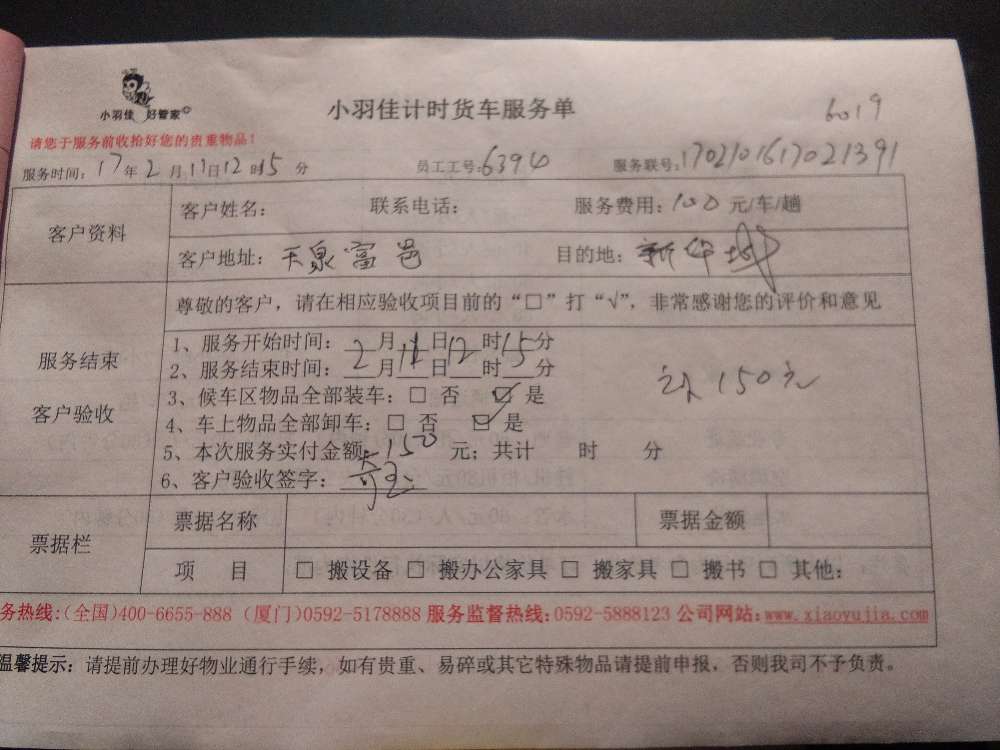 小羽佳 好管家
小羽佳计时货车服务单
6019
请您于服务前收拾好您的贵重物品！
服务时间：17年2月11日12时15分 员工工号：6394 服务联号：1702101617021391
客户资料
客户姓名： 联系电话： 服务费用：100元/车/趟
客户地址：天泉富邑 目的地：新华城
尊敬的客户，请在相应验收项目前的“□”打“√”，非常感谢您的评价和意见
服务结束
客户验收
1、服务开始时间：2月11日12时15分
2、服务结束时间：月 日 时 分
3、候车区物品全部装车：□ 否 ☑ 是
4、车上物品全部卸车：□ 否 ☑ 是
150元
5、本次服务实付金额：150元；共计 时 分
6、客户验收签字：
票据栏
票据名称 票据金额
项 目 □ 搬设备 □ 搬办公家具 □ 搬家具 □ 搬书 □ 其他：
务热线：(全国)400-6655-888 (厦门)0592-5178888 服务监督热线：0592-5888123 公司网站：www.xiaoyujia.com
温馨提示：请提前办理好物业通行手续，如有贵重、易碎或其它特殊物品请提前申报，否则我司不予负责。